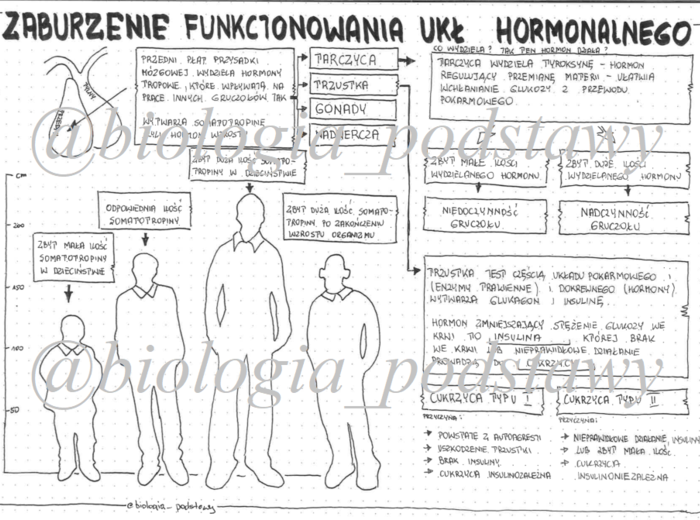 ZABURZENIE FUNKCJONOWANIA UKŁ HORMONALNEGO
PRZEDNI PŁAT PRZYSADKI
MÓZGOWEJ WYDZIELA HORMONY
TROPOWE, KTÓRE WPŁYWAJĄ NA
PRACĘ INNYCH GRUCZOŁÓW TAK
WYTWARZA SOMATOTROPINĘ
CZYLI HORMON WZROSTU
TARCZYCA
TRZUSTKA
GONADY
NADNERCZA
CO WYDZIELA? JAK TEN HORMON DZIAŁA?
TARCZYCA WYDZIELA TYROKSYNĘ - HORMON
REGULUJĄCY PRZEMIANĘ MATERII - UŁATWIA
WCHŁANIANIE GLUKOZY Z PRZEWODU
POKARMOWEGO.
@biologia_podstawy
ZBYT MAŁE ILOŚCI
WYDZIELANEGO HORMONU
ZBYT DUŻE ILOŚCI
WYDZIELANEGO HORMONU
NIEDOCZYNNOŚĆ
GRUCZOŁU
NADCZYNNOŚĆ
GRUCZOŁU
CM
200
150
100
50
ZBYT MAŁA ILOŚĆ
SOMATOTROPINY
W DZIECIŃSTWIE
ODPOWIEDNIA ILOŚĆ
SOMATOTROPINY
ZBYT DUŻA ILOŚĆ SOMATO-
TROPINY W DZIECIŃSTWIE
ZBYT DUŻA ILOŚĆ SOMATO-
TROPINY PO ZAKOŃCZENIU
WZROSTU ORGANIZMU
TRZUSTKA JEST CZĘŚCIĄ UKŁADU POKARMOWEGO I
(ENZYMY TRAWIENNE) I DOKREWNEGO (HORMONY)
WYTWARZA GLUKAGON I INSULINĘ.
HORMON ZMNIEJSZAJĄCY STĘŻENIE GLUKOZY WE
KRWI TO INSULINA KTÓREJ BRAK
WE KRWI LUB NIEPRAWIDŁOWE DZIAŁANIE
PROWADZĄ DO CUKRZYCY
@biologia_podstawy
CUKRZYCA TYPU I
PRZYCZYNA:
→ POWSTAJE Z AUTOAGRESJI
→ USZKODZENIE TRZUSTKI
→ BRAK INSULINY
→ CUKRZYCA INSULINOZALEŻNA
CUKRZYCA TYPU II
PRZYCZYNA:
→ NIEPRAWIDŁOWE DZIAŁANIE INSULINY
→ LUB ZBYT MAŁA ILOŚĆ
→ CUKRZYCA
INSULINONIEZALEŻNA
@biologia_podstawy